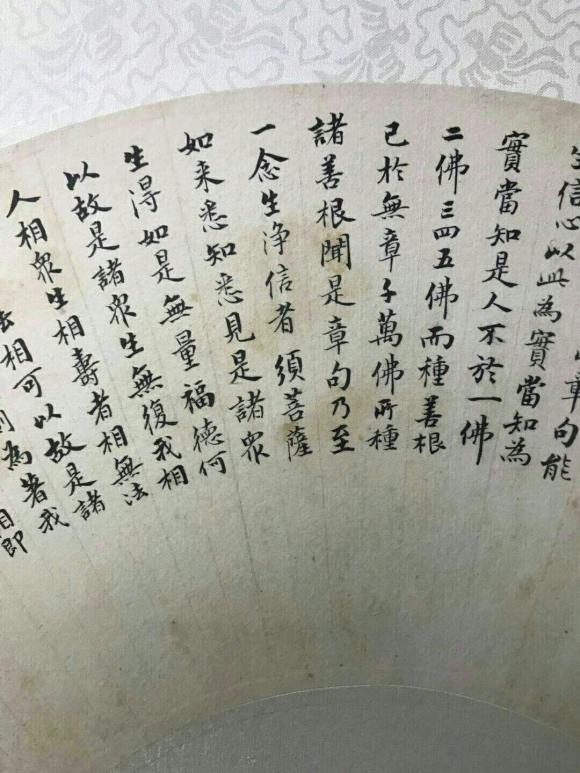 章句能
信心以此為實當知為
實當知是人不於一佛
二佛三四五佛而種善根
已於無章子萬佛所種
諸善根聞是章句乃至
一念生淨信者須菩薩
如来悉知悉見是諸眾
生得如是無量福德何
以故是諸眾生無復我相
人相眾生相壽者相無法
相可以故是諸
為著我
相即